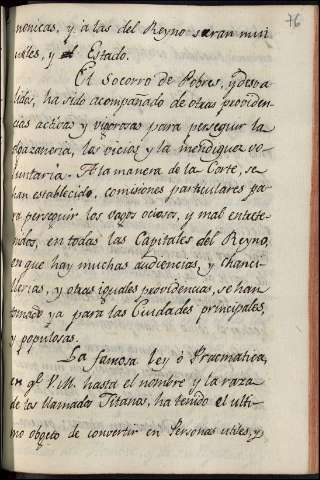 76
nonicas, y a las del Reyno seran mui
utiles, y al Estado.
El Socorro de Pobres, y desva
lidos, ha sido acompañado de otras providen
cias activas y vigorosas para perseguir la
olgazaneria, los vicios y la mendiguez vo-
luntaria. A la manera de la Corte, se
han establecido, comisiones particulares pa-
ra perseguir los vagos ociosos, y mal entrete-
nidos, en todas las Capitales del Reyno,
en que hay muchas audiencias, y chanci-
llerias, y otras iguales providencias, se han
tomado ya para las Ciudades principales,
y populosas.
La famosa ley ò Pracmatica,
en qe. V.M. hasta el nombre y la raza
de los llamados Titanos, ha tenido el ulti-
mo obgeto de convertir en Personas utiles, y